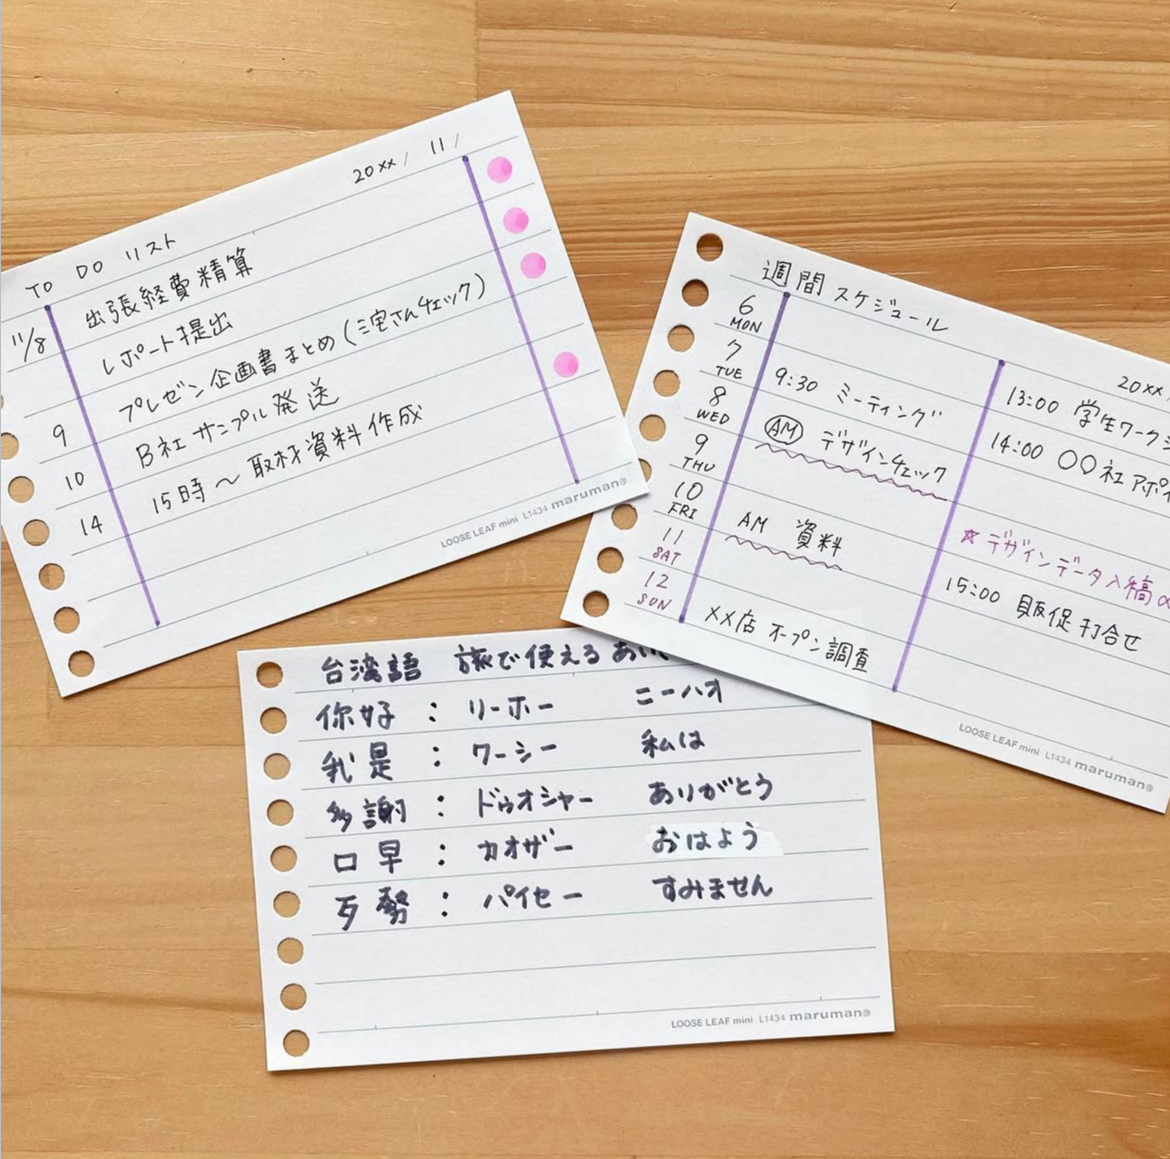 20xx/ 11/
TO DO リスト
11/8 出張経費精算
レポート提出
プレゼン企画書まとめ(三宅さんチェック)
9 B社サンプル発送
10 15時〜取材資料作成
14
LOOSE LEAF mini L1434 maruman®
週間スケジュール
20xx/
6 MON
7 TUE 9:30 ミーティング 13:00 学生ワーク
8 WED AM デザインチェック 14:00 〇〇社アポ
9 THU
10 FRI AM 資料 ☆デザインデータ入稿
11 SAT 15:00 販促打合せ
12 SUN XX店オープン調査
LOOSE LEAF mini L1434 maruman®
台湾語 旅で使える あい
你好 : リーホー ニーハオ
我是 : ワーシー 私は
多謝 : ドゥオシャー ありがとう
口早 : カオザー おはよう
歹勢 : パイセー すみません
LOOSE LEAF mini L1434 maruman®